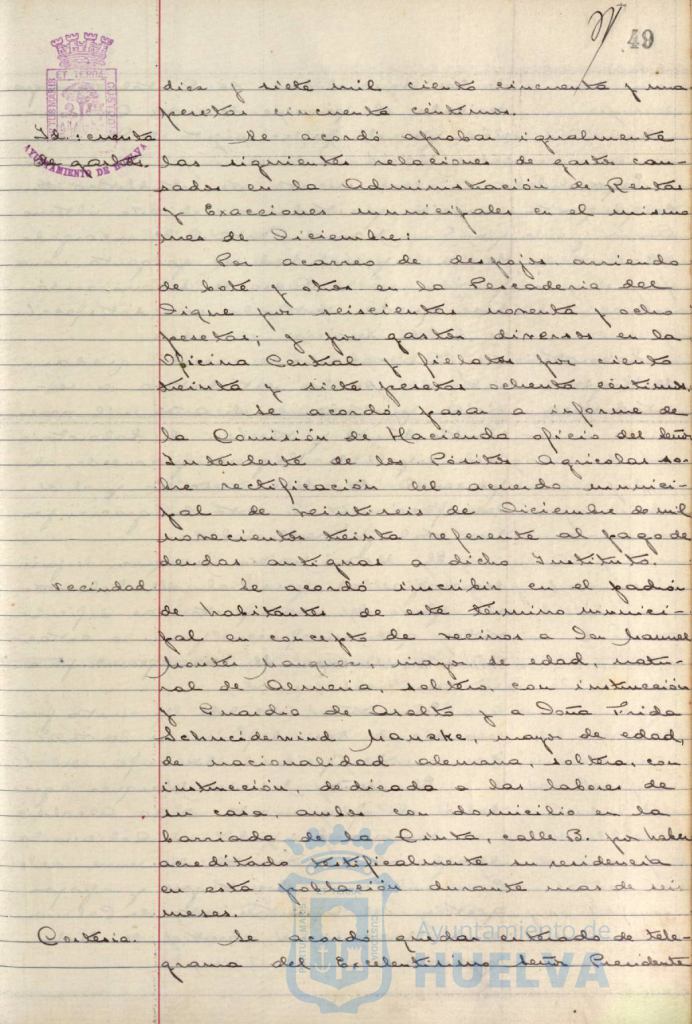 49
diez y siete mil ciento cincuenta y una
pesetas cincuenta céntimos.
Id: cuenta
de gastos.
Se acordó aprobar igualmente
las siguientes relaciones de gastos cau-
sados en la Administración de Rentas
y Exacciones municipales en el mismo
mes de Diciembre:
Por acarreo de despojos, arriendo
de bote y otros en la Pescaderia del
Dique por seiscientas noventa y ocho
pesetas; y por gastos diversos en la
Oficina Central y fielatos por ciento
treinta y siete pesetas ochenta céntimos.
Se acordó pasar a informe de
la Comisión de Hacienda oficio del Señor
Intendente de los Pósitos Agricolas so-
bre rectificación del acuerdo munici-
pal de veintiseis de Diciembre de mil
novecientos treinta referente al pago de
deudas antiguas a dicho Instituto.
Vecindad.
Se acordó inscribir en el padrón
de habitantes de este término munici-
pal en concepto de vecinos a Don Manuel
Montes Marquez, mayor de edad, natu-
ral de Almeria, soltero, con instrucción
y Guardia de Asalto y a Doña Frida
Schneidewind Manske, mayor de edad,
de nacionalidad alemana, soltera, con
instrucción, dedicada a las labores de
su casa, ambos con domicilio en la
barriada de la Cinta, calle B. por haber
acreditado testificalmente su residencia
en esta población durante mas de seis
meses.
Cortesia.
Se acordó quedar enterado de tele-
grama del Excelentisimo Señor Presidente
AYUNTAMIENTO DE HUELVA
Ayuntamiento de
HUELVA